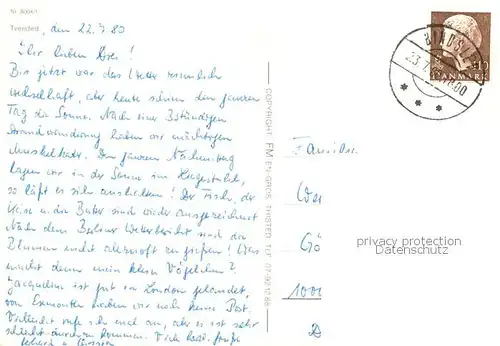 Nr. 80061
Tversted, den 22.7.80
Ihr lieben Drei!
Bis jetzt war das Wetter ziemlich
wechselhaft, aber heute schien den ganzen
Tag die Sonne. Nach einer 3stündigen
Strandwanderung haben wir mächtigen
Muskelkater. Den ganzen Nachmittag
lagen wir in der Sonne im
so läßt es sich aushalten! Der Fisch, der
Käse u. die Butter sind wieder ausgezeichnet
Nach dem Berliner Wetterbericht sind die
Blumen nicht zu gießen! Was
macht denn mein kleines Vögelchen?
Jacqueline ist gut in London gelandet,
von haben wir noch keine Post.
Vielleicht rufe ich mal an, aber es ist sehr
schlecht durchzukommen. Viele
COPYRIGHT FM EN-GROS THISTED TLF.
BINDSLEV
23.7.
DANMARK
Familie
1000
privacy protection
Datenschutz